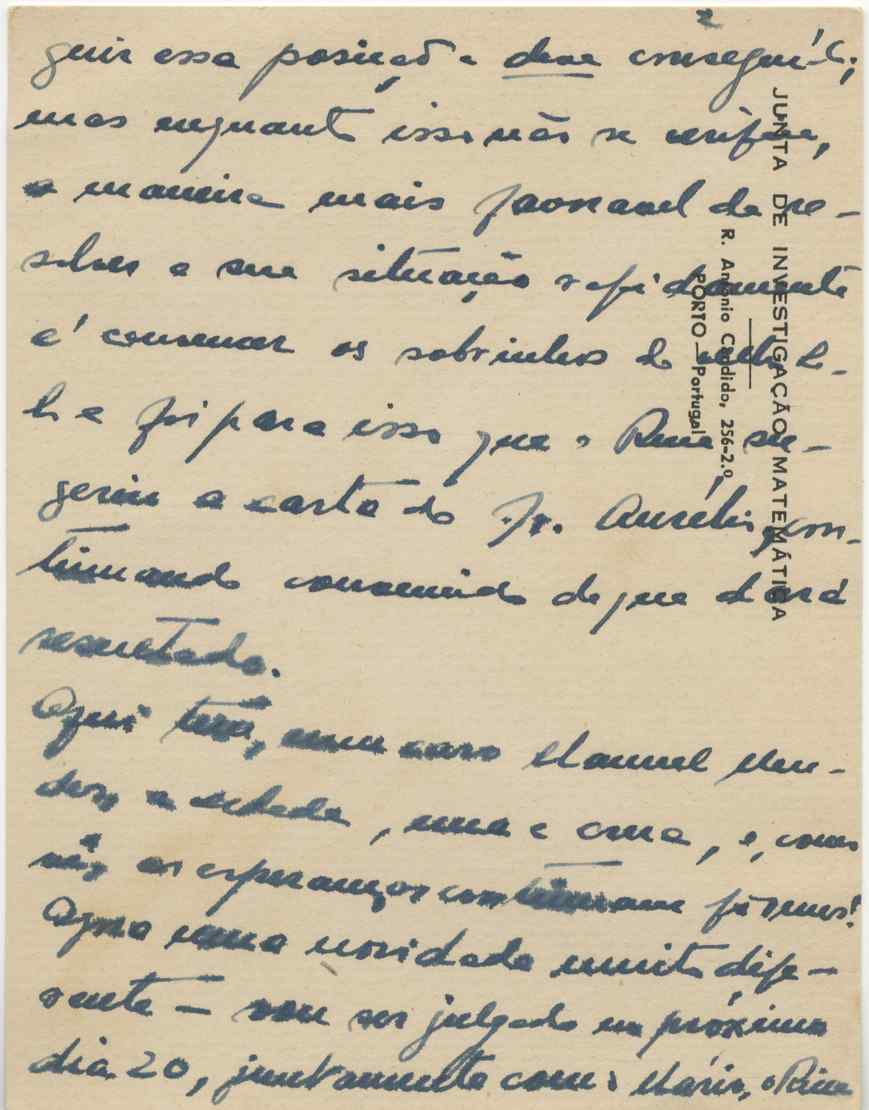 2
guir essa posição e deve conseguí-la;
mas enquanto isso não se verifica,
a maneira mais favoravel de re-
solver a sua situação rapidamente
é convencer os sobrinhos do
e foi para isso que o Rui su-
geriu a carta do Sr. Aurélio, con-
tinuando convencido de que dará
resultado.
Aqui tem, meu caro Manuel Men-
des, a verdade, nua e crua, e, como
vê, as esperanças continuam firmes!
Agora uma novidade muito dife-
rente — vou ser julgado no próximo
dia 20, juntamente com o Mário, o Rui
JUNTA DE INVESTIGAÇÃO MATEMÁTICA
R. António Cândido, 256-2.º
PORTO — Portugal